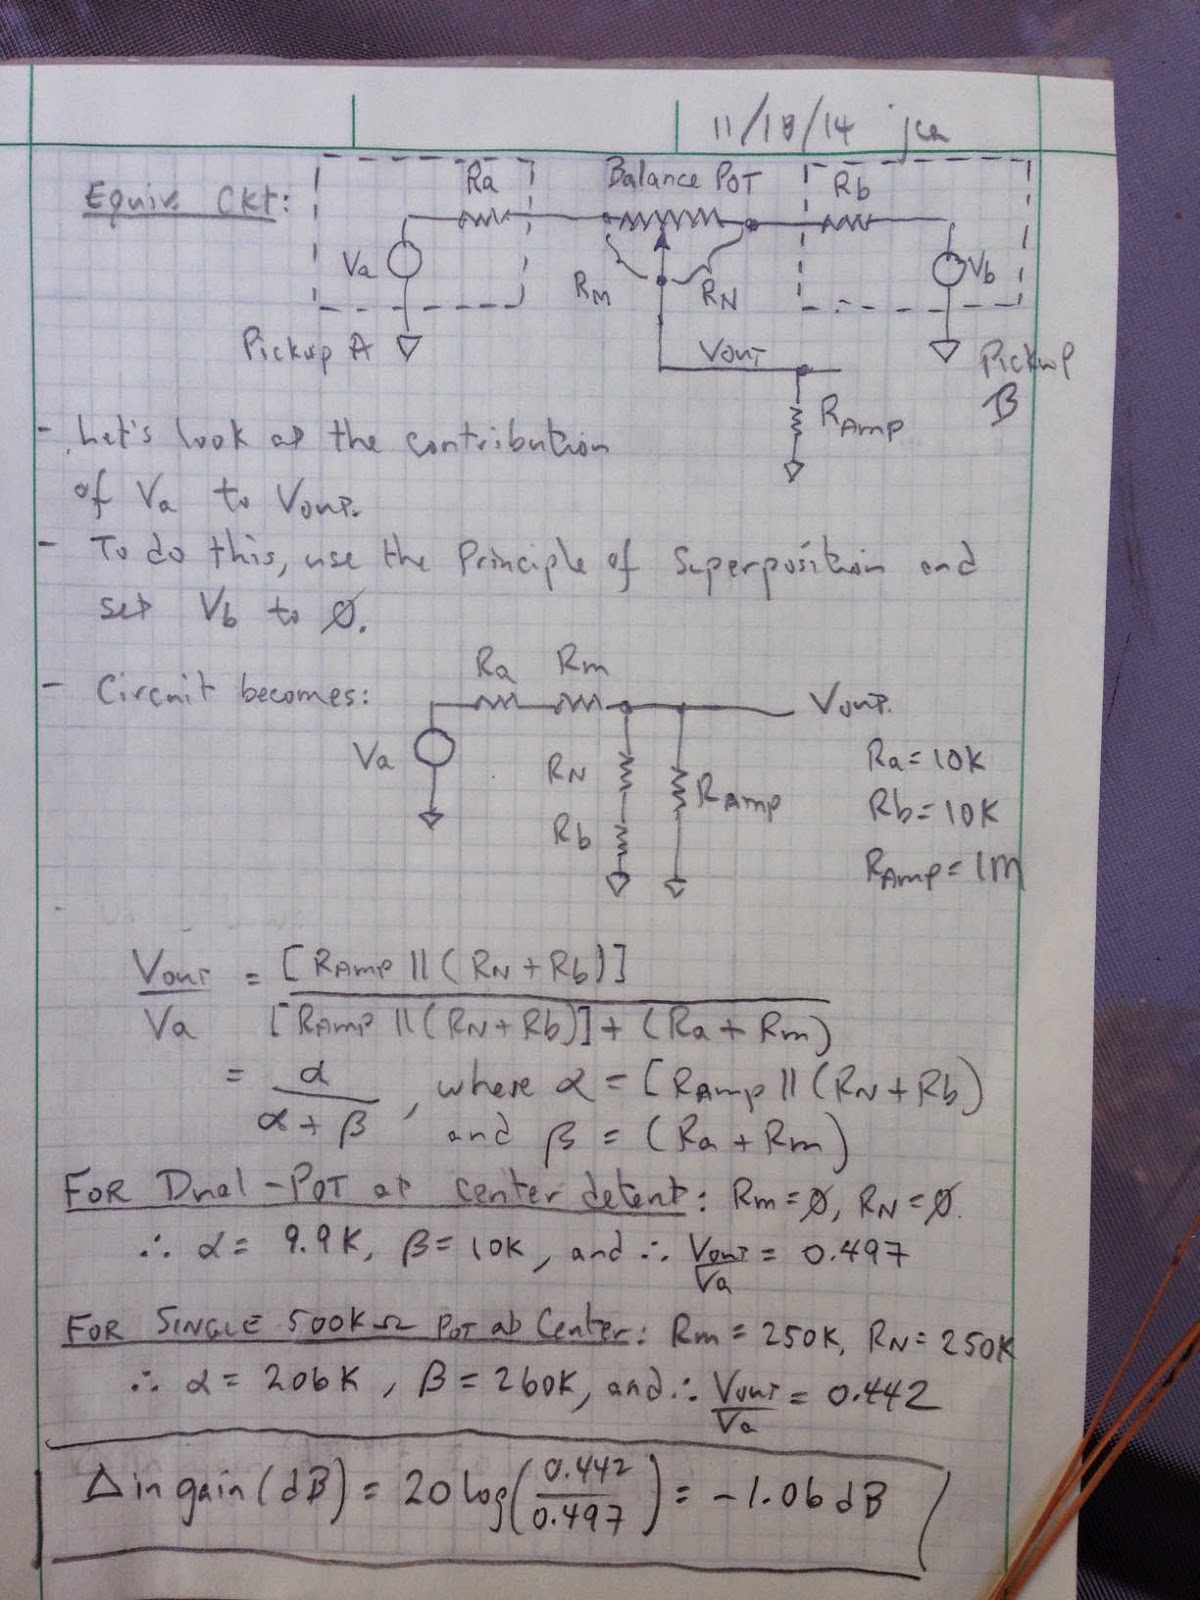 11/18/14 jca
Equiv Ckt:
Ra Balance POT Rb
Va RM RN Vb
Pickup A VOUT Pickup B
RAmp
- Let's look at the contribution
of Va to VOUT.
- To do this, use the Principle of Superposition and
set Vb to Ø.
Ra Rm
- Circuit becomes: VOUT.
Va RN RAmp Ra = 10K
Rb Rb = 10K
RAmp = 1M
VOUT/Va = [RAmp || (RN + Rb)] / [RAmp || (RN + Rb)] + (Ra + Rm)
= α/α + β , where α = [RAmp || (RN + Rb)
and β = (Ra + Rm)
FOR Dual-POT at center detent: Rm = Ø, RN = Ø.
∴ α = 9.9K, β = 10K, and ∴ VOUT/Va = 0.497
FOR SINGLE 500KΩ POT at Center: Rm = 250K, RN = 250K
∴ α = 206K, β = 260K, and ∴ VOUT/Va = 0.442
Δ in gain (dB) = 20 log(0.442/0.497) = -1.06 dB